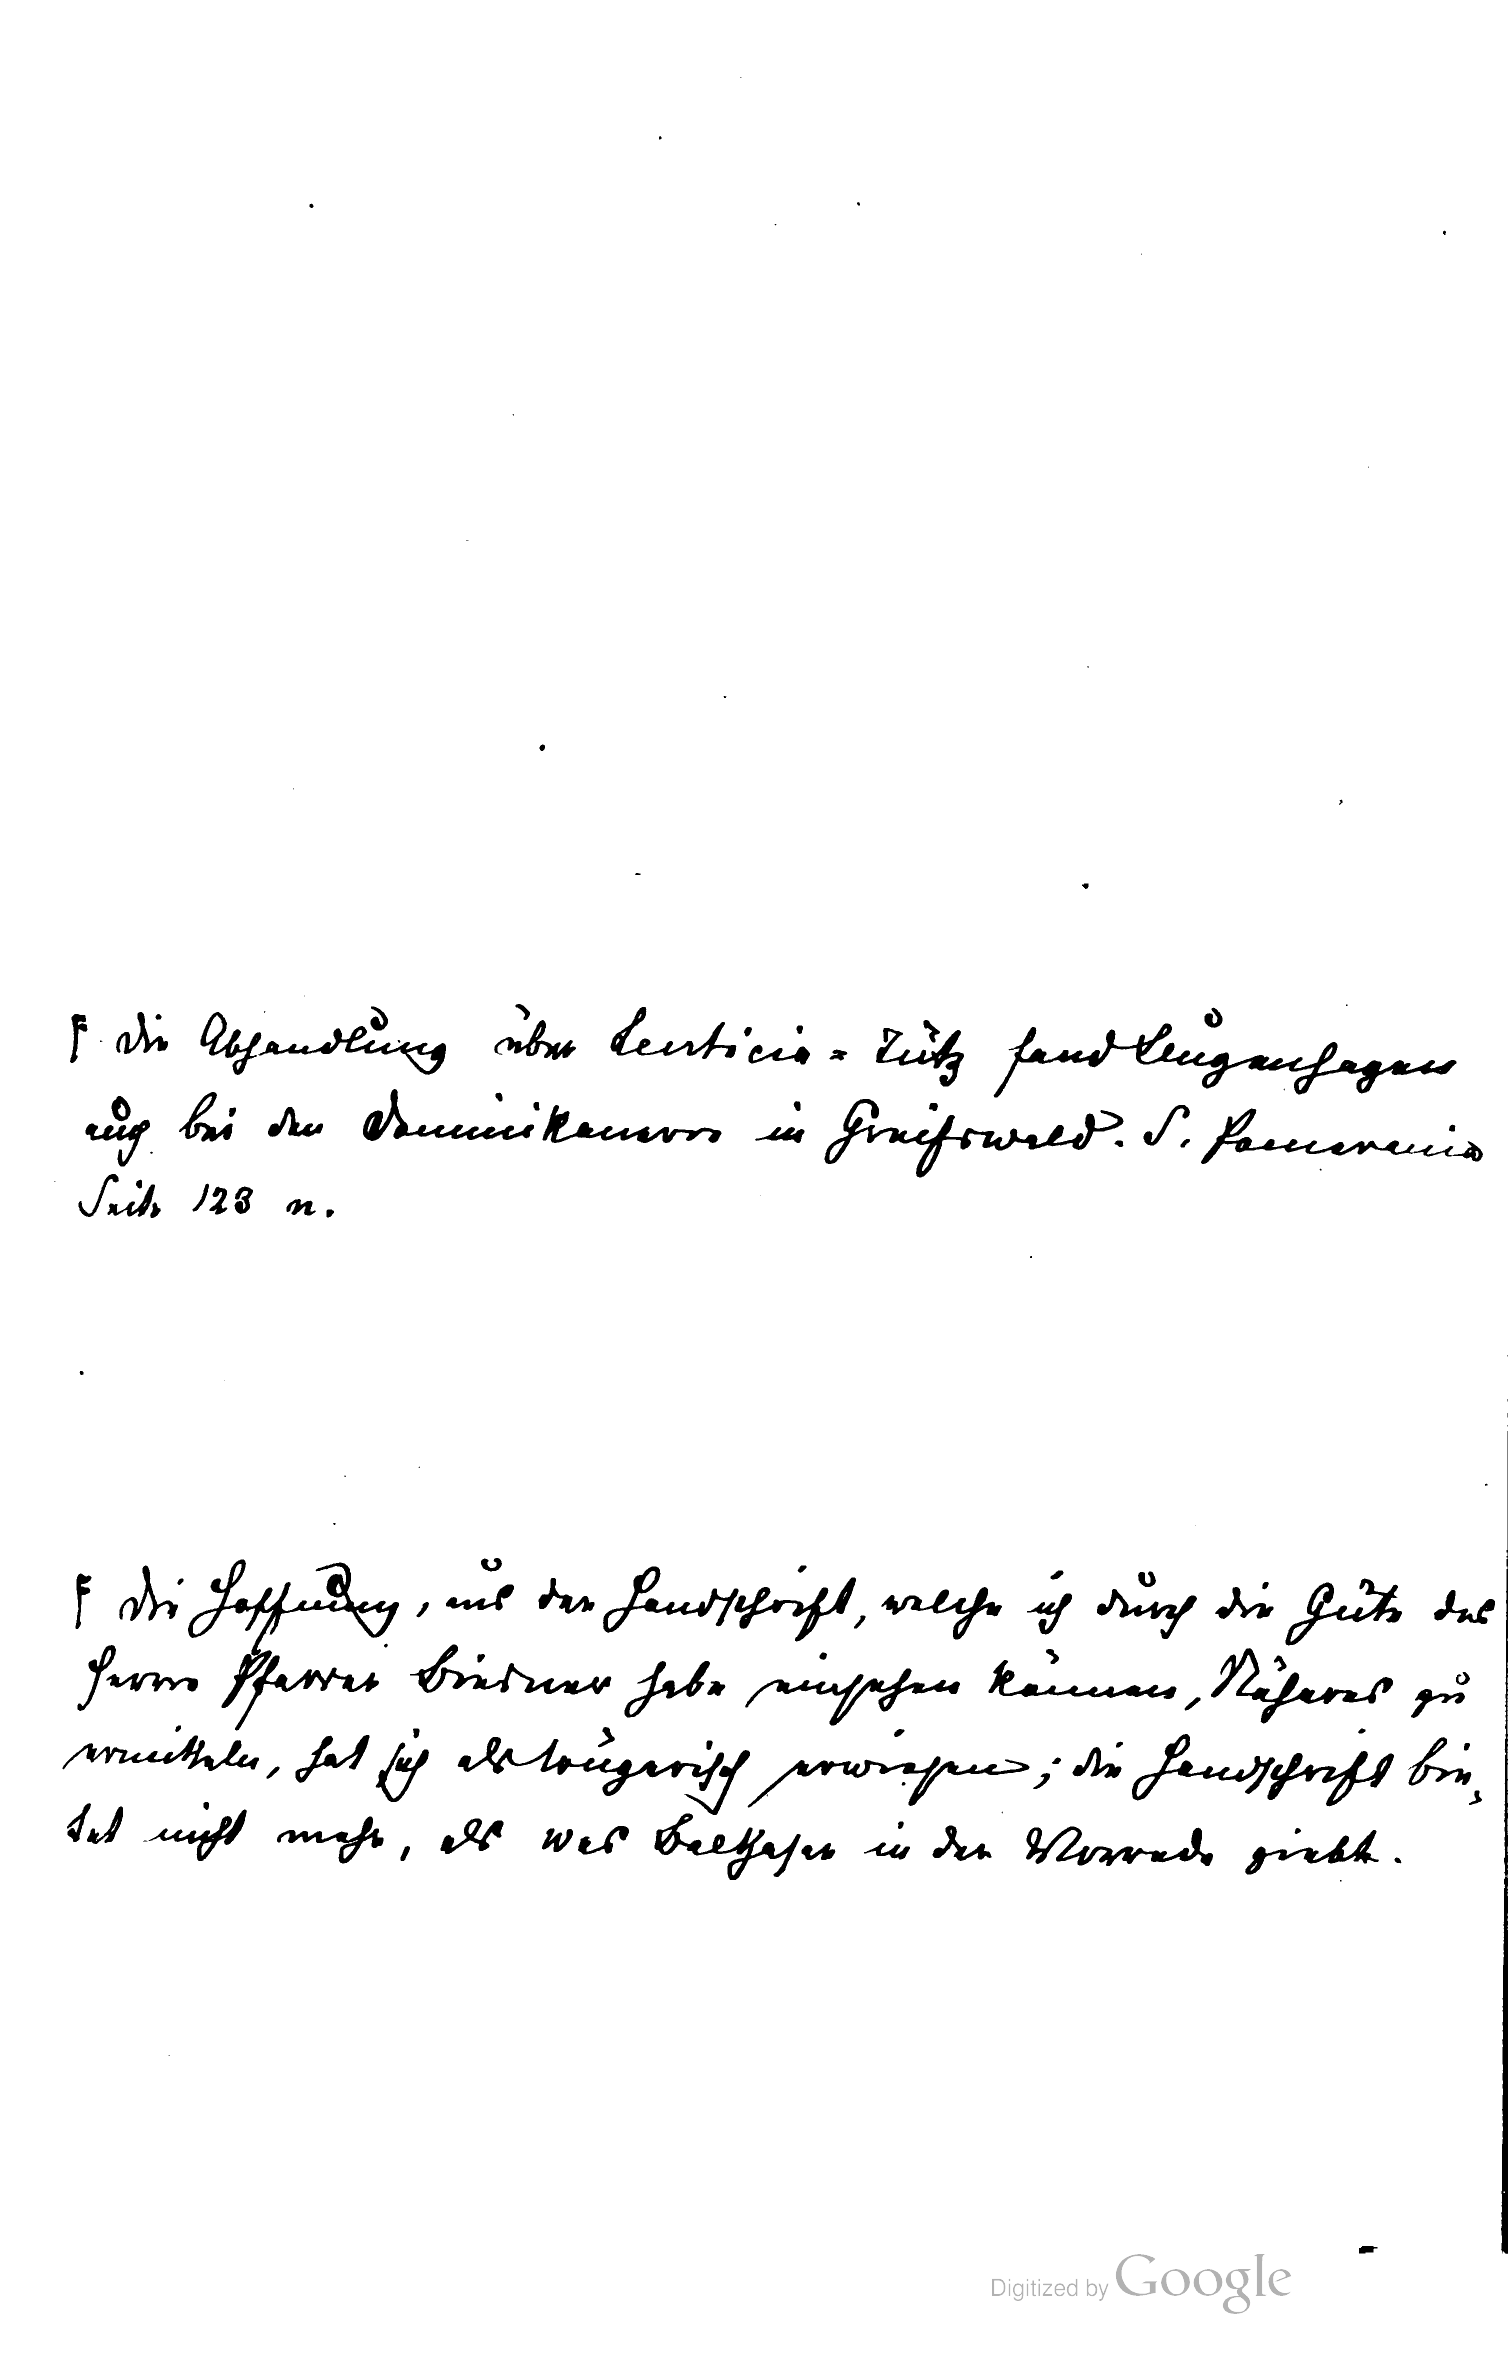 Die Abhandlung über Leuticia = Lütz fand Bugenhagen
auch bei den Dominikanern in Greifswald. S. Pomerania
Seite 123 n.
Die Hoffnung, aus der Handschrift, welche ich durch die Güte des
Herrn Pfarrer Biesner habe einsehen können, Näheres zu
ermitteln, hat sich als trügerisch erwiesen; die Handschrift bie-
tet nicht mehr, als was Balthasar in der Vorrede giebt.
Digitized by Google